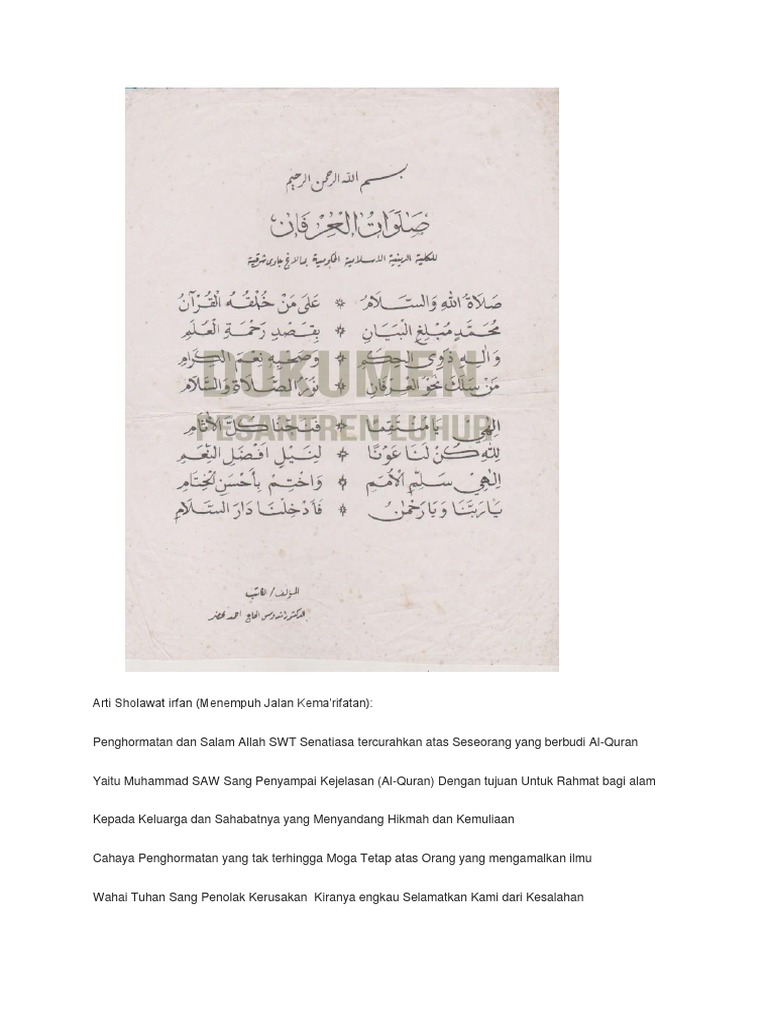 بسم الله الرحمن الرحيم
صَلَوَاتُ الْعِرْفَان
للكلية الدينية الاسلامية الحكومية بمالانج جاوى شرقية
صَلَاةُ اللهِ وَالسَّلَامُ * عَلَى مَنْ خُلُقُهُ الْقُرْآنُ
مُحَمَّدٍ مُبَلِّغِ الْبَيَانِ * بِقَصْدِ رَحْمَةِ الْعَلَمِ
وَآلِهِ ذَوِي الْحِكَمِ * وَصَحْبِهِ نِعَمَ الْكِرَامِ
مَنْ سَلَكَ نَحْوَ الْعِرْفَانِ * نُورُ الصَّلَاةِ وَالسَّلَامِ
DOKUMEN
PESANTREN LUHUR
اِلٰهِيْ يَا مُنْتَقِمًا * كُلَّ الْاَثَامِ
لِلّٰهِ كُنْ لَنَا عَوْنًا * لِنَيْلِ اَفْضَلِ النِّعَمِ
اِلٰهِيْ سَلِّمِ الْاُمَمِ * وَاخْتِمْ بِأَحْسَنِ الْخِتَامِ
يَا رَبَّنَا وَيَا رَحْمٰنُ * فَأَدْخِلْنَا دَارَ السَّلَامِ
المؤلف / الكاتب
الحاج احمد
Arti Sholawat irfan (Menempuh Jalan Kema'rifatan):
Penghormatan dan Salam Allah SWT Senatiasa tercurahkan atas Seseorang yang berbudi Al-Quran
Yaitu Muhammad SAW Sang Penyampai Kejelasan (Al-Quran) Dengan tujuan Untuk Rahmat bagi alam
Kepada Keluarga dan Sahabatnya yang Menyandang Hikmah dan Kemuliaan
Cahaya Penghormatan yang tak terhingga Moga Tetap atas Orang yang mengamalkan ilmu
Wahai Tuhan Sang Penolak Kerusakan  Kiranya engkau Selamatkan Kami dari Kesalahan